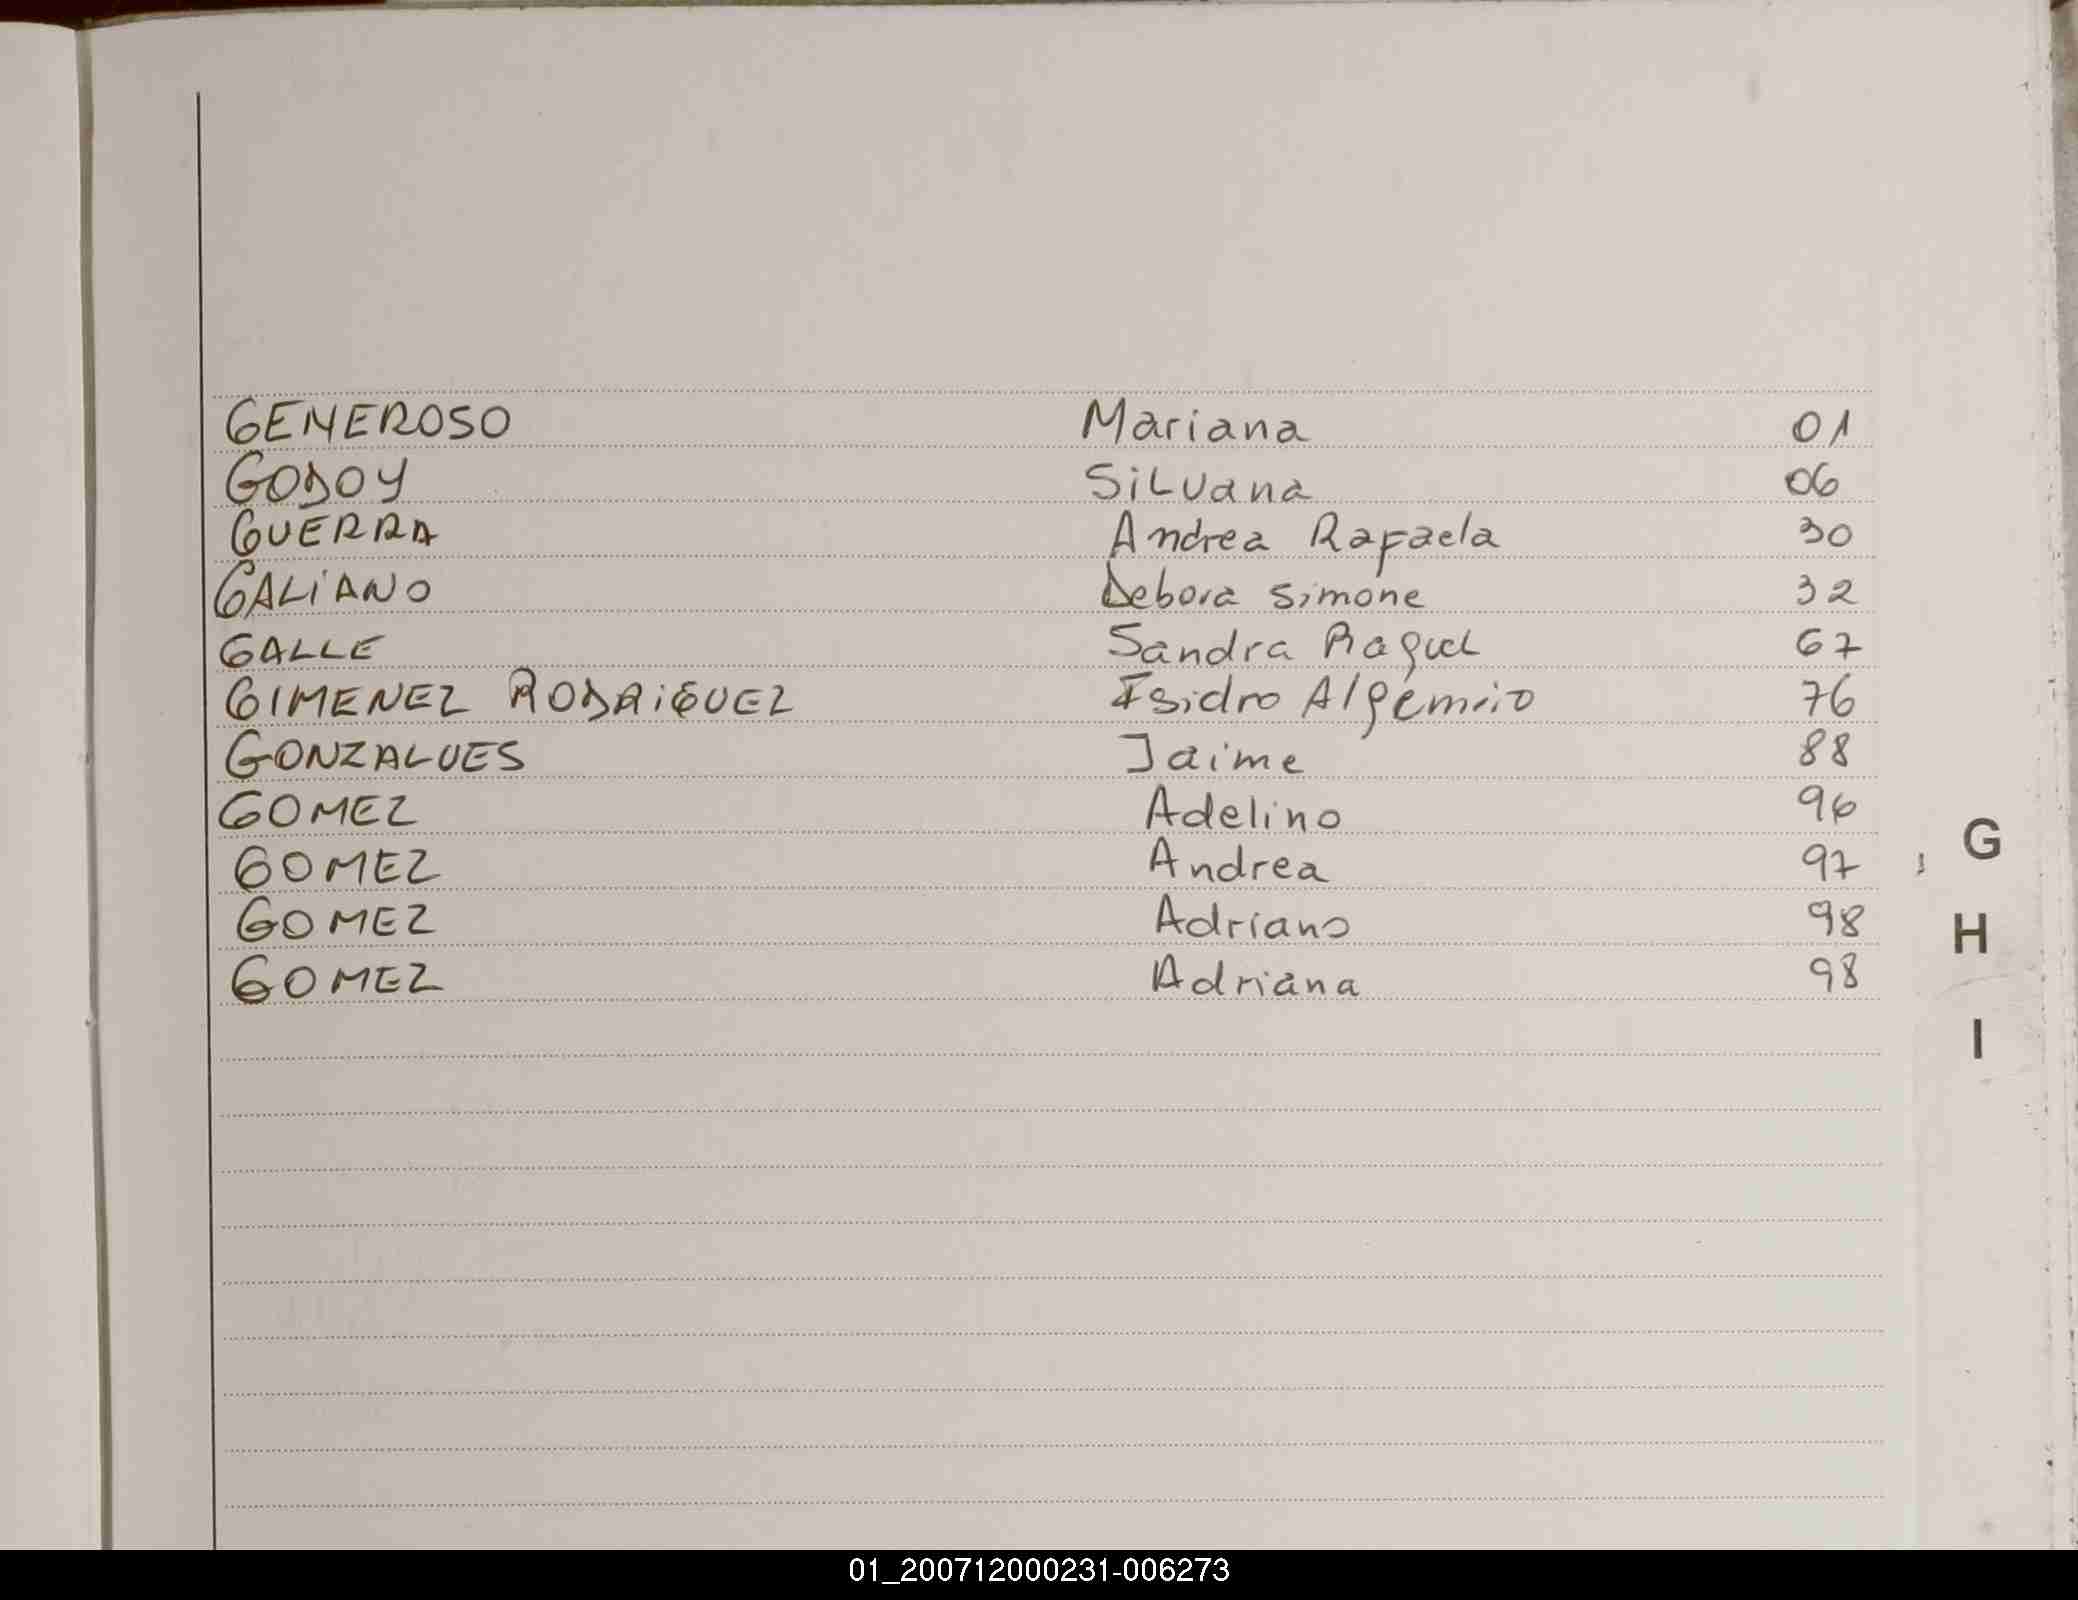 GENEROSO Mariana 01
GODOY Silvana 06
GUERRA Andrea Rafaela 30
GALiANO Debora Simone 32
GALLE Sandra Raquel 67
GIMENEZ RODRiGUEZ Isidro Algemiro 76
GONZALVES Jaime 88
GOMEZ Adelino 96
GOMEZ Andrea 97
GOMEZ Adriano 98
GOMEZ Adriana 98
G
H
I
01_200712000231-006273